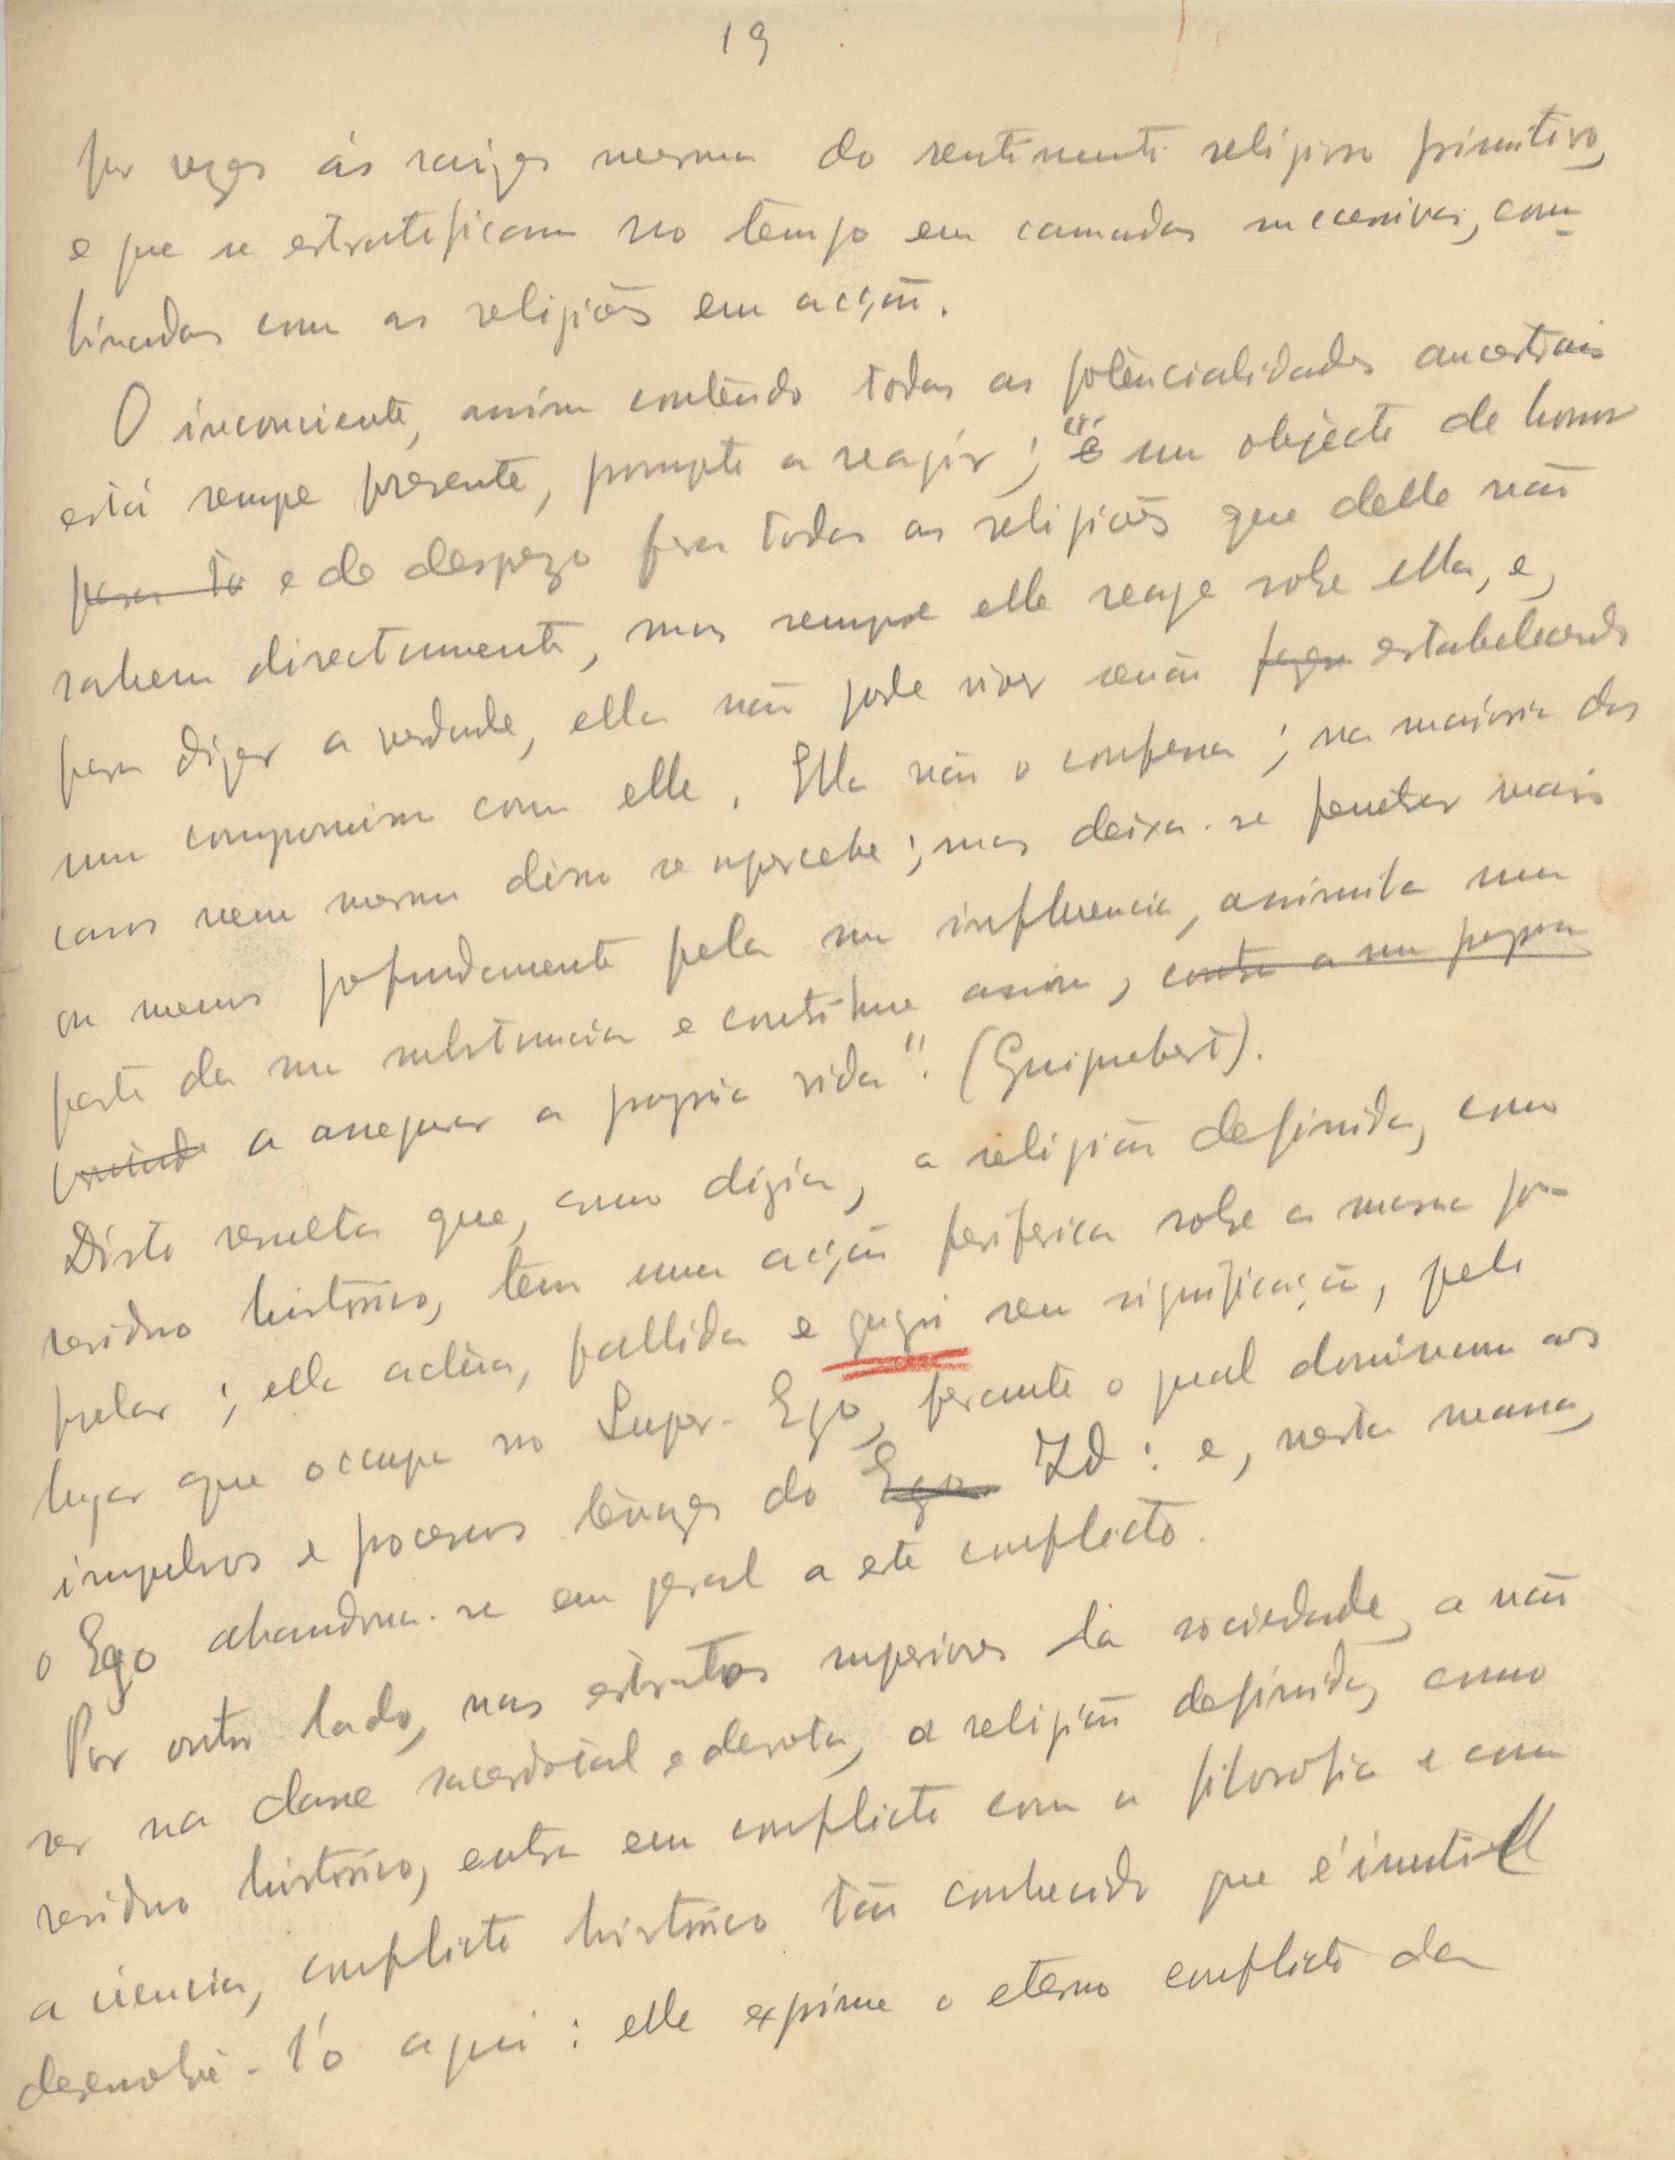 19
por vezes ás raizes mesmo do sentimento religioso primitivo,
e que se estratificam no tempo em camadas successivas, com-
binadas com as religiões em acção.
O inconsciente, assim contendo todas as potencialidades ancestrais
está sempre presente, prompto a reagir; "é um objecto de horror
para to e de desprezo para todas as religiões que delle não
sahem directamente, mas sempre elle reage sobre ella, e,
para dizer a verdade, ella não pode viver senão fazer estabelecendo
um compromisso com elle. Ella não o confessa; na maioria dos
casos nem mesmo disso se apercebe; mas deixa-se penetrar mais
ou menos profundamente pela sua influencia, assimila uma
parte da sua substancia e continue assim, contra a sua propria
vontade a assegurar a propria vida". (Guignebert).
Disto resulta que, como dizia, a religião definida, como
residuo historico, tem uma acção periferica sobre a massa po-
pular; ella actúa, pallida e quasi sem significação, pelo
lugar que occupa no Super-Ego, perante o qual dominam os
impulsos e processos tenazes do Ego Id: e, nesta massa,
o Ego abandona-se em geral a este conflicto.
Por outro lado, nas estratos superiores da sociedade, a não
ser na classe sacerdotal e devota, a religião definida, como
residuo historico, entra em conflicto com a filosofia e com
a ciencia, conflicto historico tão conhecido que é inutil
desenvolvê-l'o aqui: elle exprime o eterno conflicto da